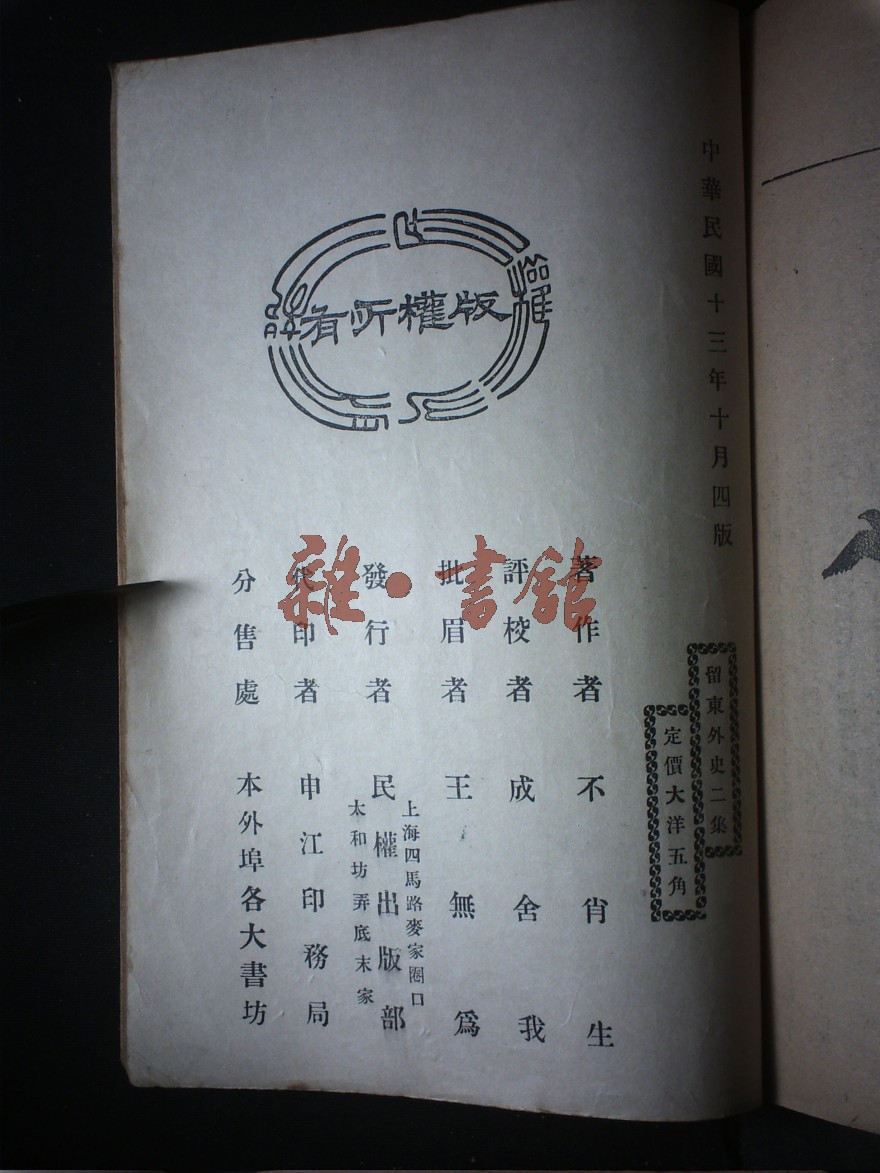 中華民國十三年十月四版
留東外史二集
定價大洋五角
版權所有
著作者 不肖生
評校者 成舍我
批眉者 王無爲
發行者 民權出版部
上海四馬路麥家圈口
太和坊弄底末家
代印者 申江印務局
分售處 本外埠各大書坊
雜·書館